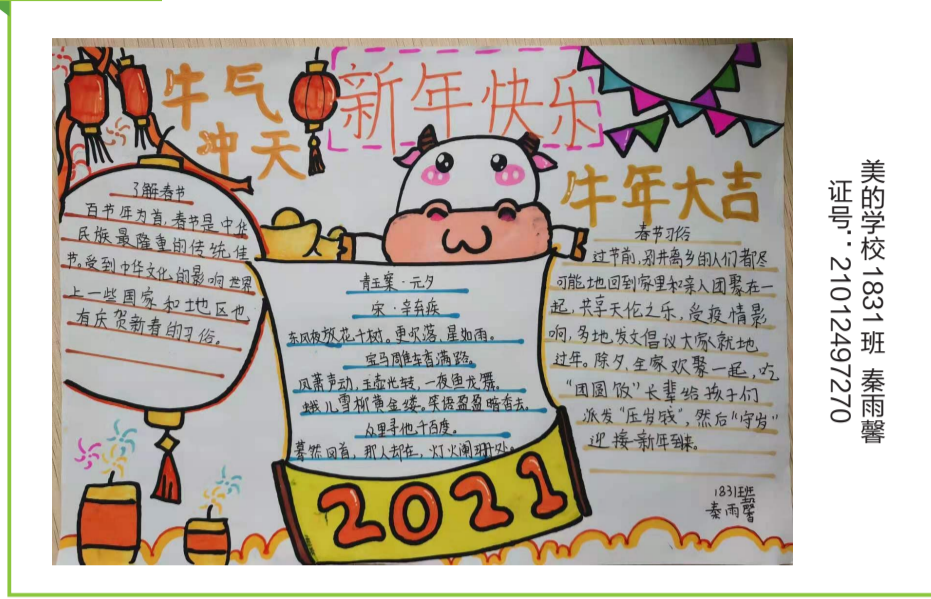 牛气
冲天
新年快乐
牛年大吉
了解春节
百节年为首,春节是中华
民族最隆重的传统佳
节。受到中华文化的影响世界
上一些国家和地区也
有庆贺新春的习俗。
青玉案·元夕
宋·辛弃疾
东风夜放花千树。更吹落、星如雨。
宝马雕车香满路。
风萧声动,玉壶光转,一夜鱼龙舞。
蛾儿雪柳黄金缕。笑语盈盈暗香去。
众里寻他千百度。
蓦然回首,那人却在,灯火阑珊处。
2021
春节习俗
过节前,别井离乡的人们都尽
可能地回到家里和亲人团聚在一
起,共享天伦之乐,受投情影
响,多地发文倡议大家就地
过年。除夕,全家欢聚一起,吃
“团圆饭”长辈给孩子们
派发“压岁钱”,然后“守岁”
迎接新年到来。
1831班
秦雨馨
美的学校 1831 班 秦雨馨
证号:21012497270